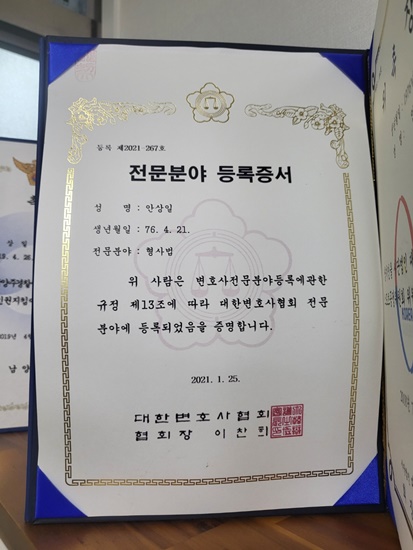 등록 제2021-267호
전문분야 등록증서
성 명 : 안상일
생년월일 : 76. 4. 21.
전문분야 : 형사법
위 사람은 변호사전문분야등록에관한
규정 제13조에 따라 대한변호사협회 전문
분야에 등록되었음을 증명합니다.
2021. 1. 25.
대한변호사협회
협회장 이찬희